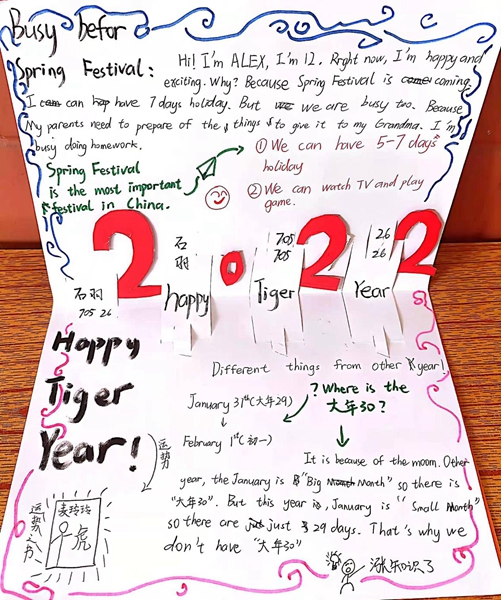 Busy befor
Spring Festival:
Hi! I'm ALEX, I'm 12. Rright now, I'm happy and
exciting. Why? Because Spring Festival is coming.
I can have 7 days holiday. But we are busy two. Because
My parents need to prepare of the things to give it to my Grandma. I'm
busy doing homework.
Spring Festival
is the most important
festival in China.
① We can have 5-7 days
holiday
② We can watch TV and play
game.
2022
石羽
705 26
石
羽
705
705
26
26
happy
Tiger
Year
Happy
Tiger
Year!
Different things from other year!
January 31th (大年29)
↓
February 1st (初一)
? Where is the
大年30?
It is because of the moom. Other
year, the January is "Big Month" so there is
"大年30". But this year is, January is "Small Month"
so there are just 29 days. That's why we
don't have "大年30"
运势
运势之书
虎
涨知识了